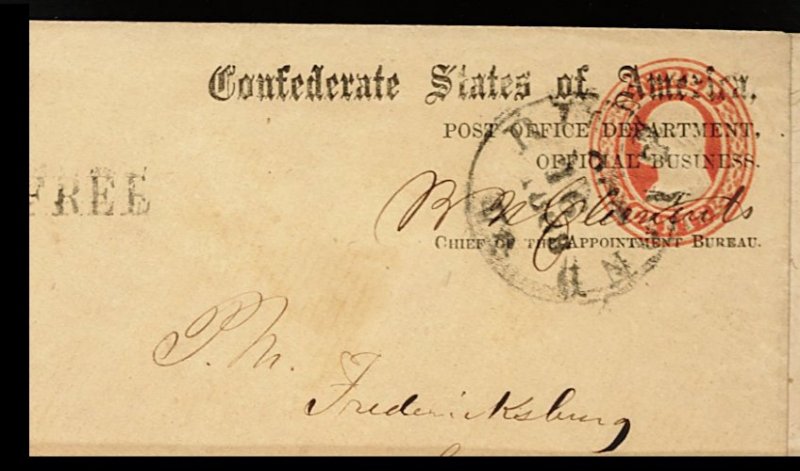 Confederate States of America,
POST OFFICE DEPARTMENT,
OFFICIAL BUSINESS.
FREE
B N Clements
CHIEF OF THE APPOINTMENT BUREAU.
P. M.
Fredericksburg